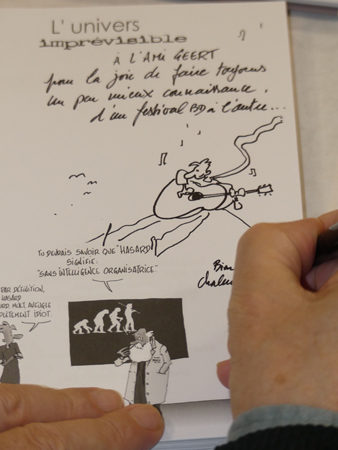 L'univers
imprévisible
À L'AMI GEERT
pour la joie de faire toujours
un peu mieux connaissance,
d'un festival BD à l'autre...
TU DEVRAIS SAVOIR QUE "HASARD"
SIGNIFIE:
"SANS INTELLIGENCE ORGANISATRICE".
PAR DÉFINITION,
HASARD
AVEUGLE
IDIOT.